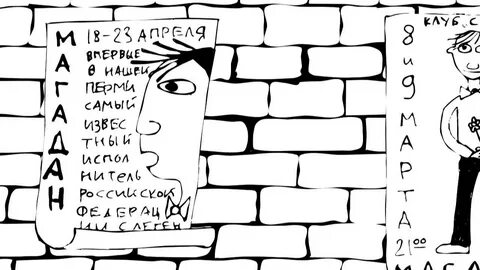 МАГАДАН
18-23 АПРЕЛЯ
ВПЕРВЫЕ
В НАШЕЙ
ПЕРМИ
САМЫЙ
ИЗВЕС
ТНЫЙ
ИСПОЛ
НИТЕЛЬ
РОССИЙСКОЙ
ФЕДЕРАЦ
ИИ С ЛЕГЕН
КЛУБ С
8 и 9 МАРТА
21 00
МАГА